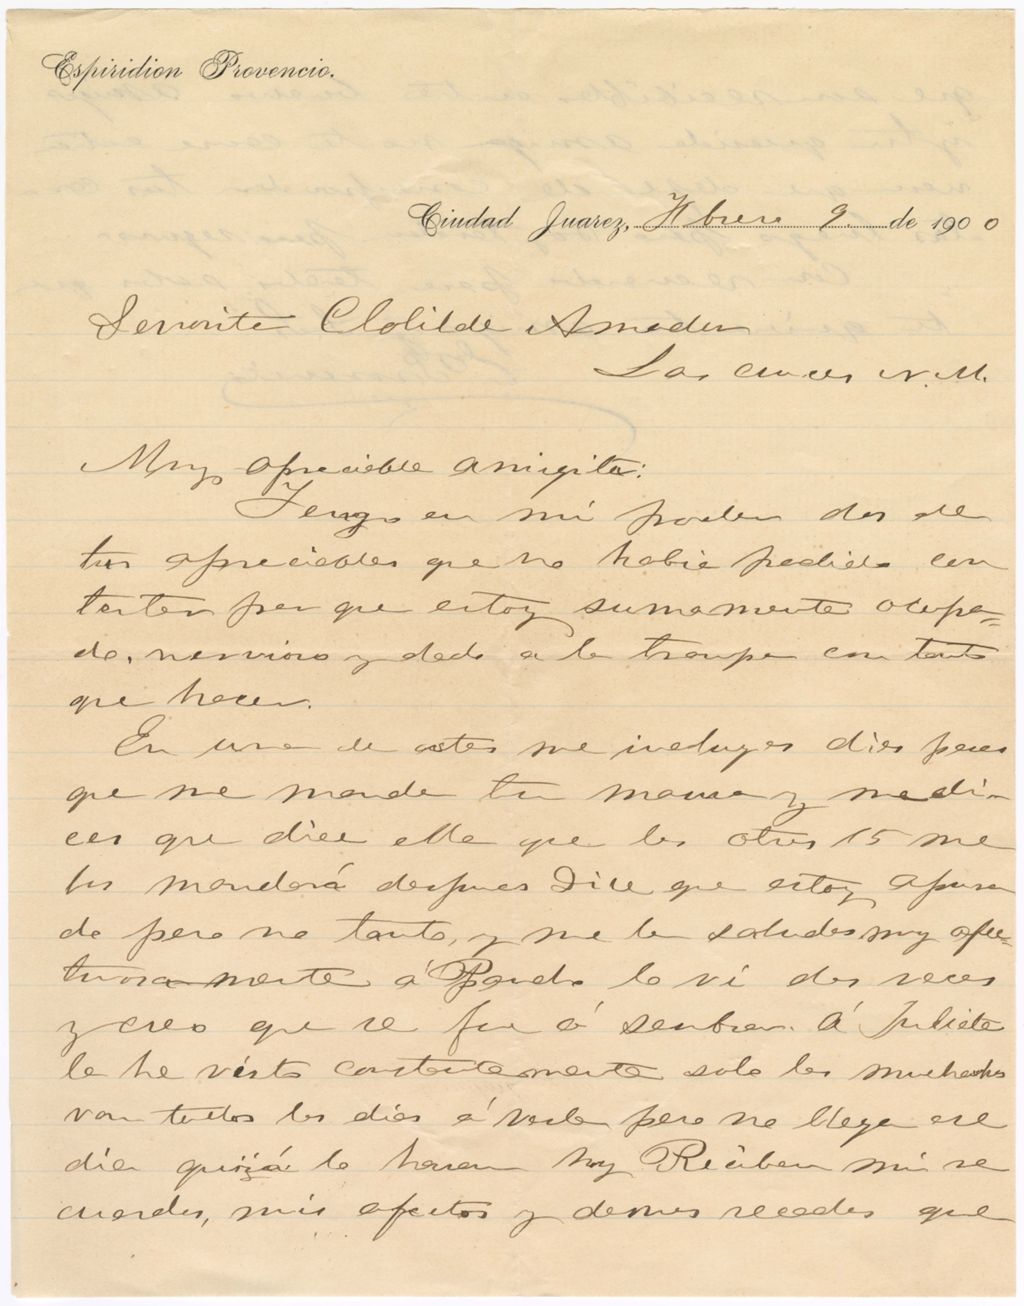 Espiridion Provencio.
Ciudad Juarez, Febrero 9 de 1900
Serrorita Clotilde Amador
Las Cruces N.M.
Muy apreciable amigita:
Tengo en mi poder dos de
tus apreciables que no habia podido con
testar por que estoy sumamente ocupa=
do, nervioso y dado a la trampa con tanto
que hacer.
En una de estas me incluyes dies pesos
que me manda tu mama y me di-
ces que dice ella que los otros 15 me
los mandará despues Dile que estoy apura
do pero no tanto, y me la saludes muy afec=
tuosamente á Pando lo ví dos veces
y creo que se fue á sembrar. Á Julieta
la he visto constantemente solo los muchachos
van todos los dias á verla pero no llega ese
dia quizá lo haran hoy Recíben mis re
cuerdos, mis afectos y demas recados que